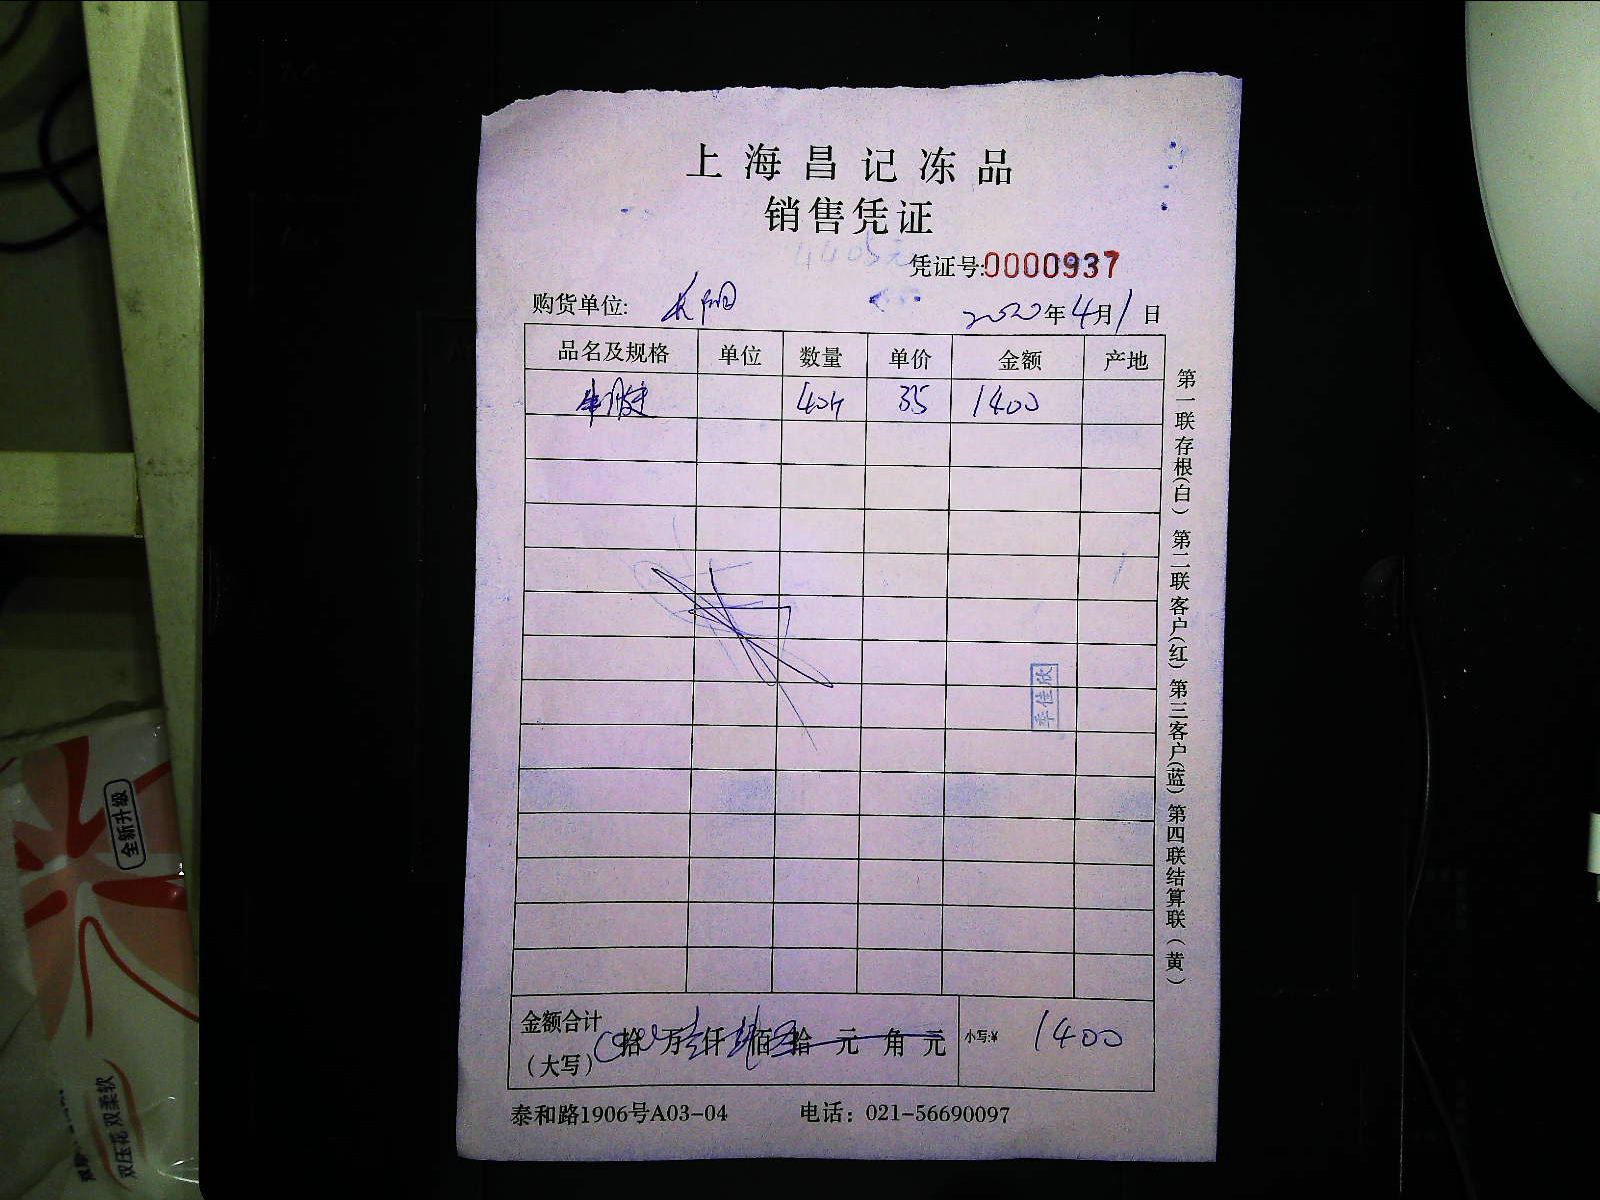 上海昌记冻品
销售凭证
4405元
凭证号:0000937
购货单位:
2020年4月1日
品名及规格 单位 数量 单价 金额 产地
40斤 35 1400
季佳欣
金额合计
(大写) 拾 万 仟 佰 拾 元 角 元 小写:¥ 1400
泰和路1906号A03-04 电话：021-56690097
第一联存根(白) 第二联客户(红) 第三客户(蓝) 第四联结算联(黄)
全新升级
双压花 双柔软